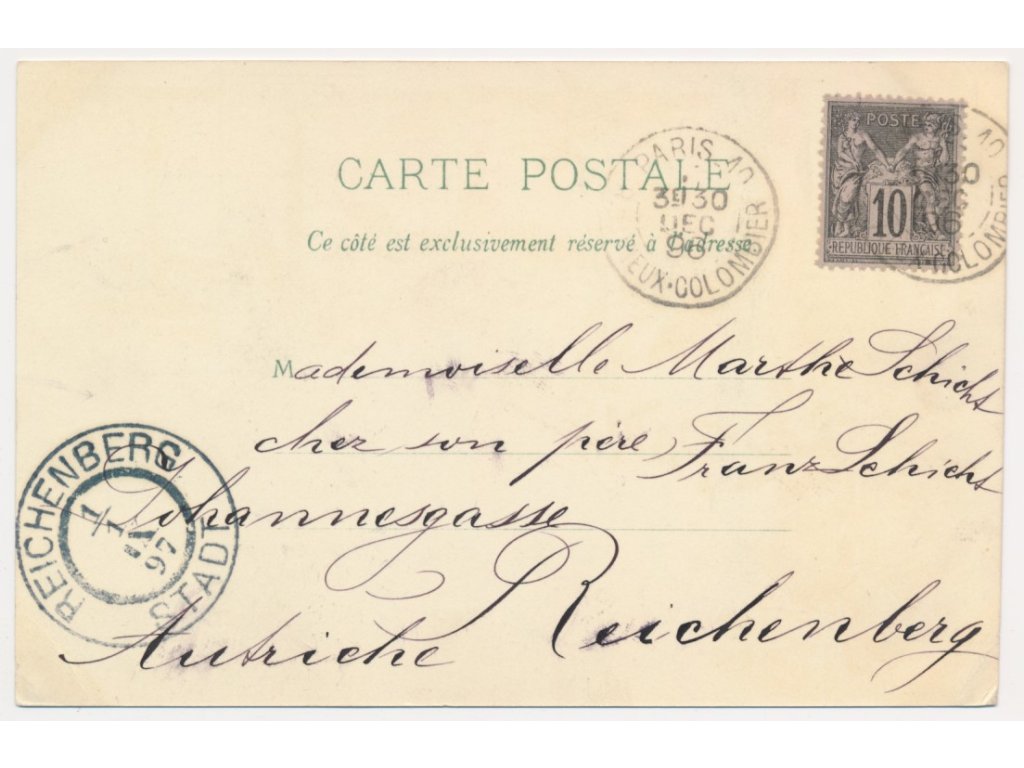 CARTE POSTALE
Ce côté est exclusivement réservé à l'adresse
PARIS 10
3E 30
DEC
96
EUX·COLOMBIER
POSTE
10
REPUBLIQUE FRANÇAISE
10
30
COLOMBIER
Mademoiselle Marthe Schicht
chez son père Franz Schicht
Johannesgasse
Reichenberg
Autriche
REICHENBERG
1/1
97
STADT